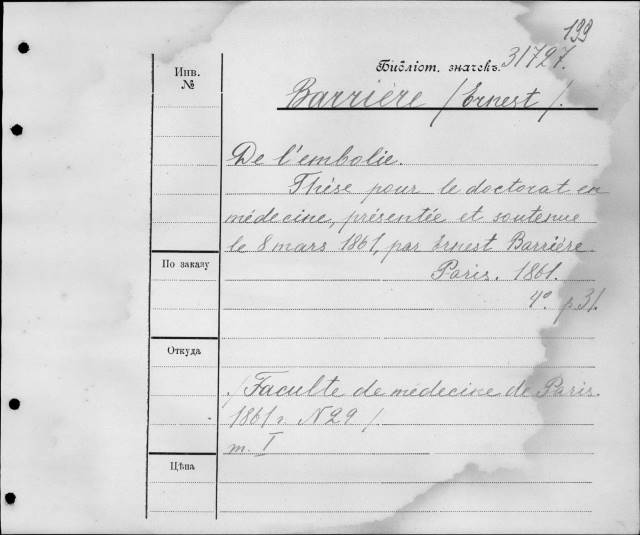 199
Библіот. значекъ. 31727.
Инв.
№
Barrière (Ernest).
De l'embolie.
Thèse pour le doctorat en
médecine, présentée et soutenue
le 8 mars 1861, par Ernest Barrière.
По заказу
Paris. 1861.
4° p. 31.
Откуда
(Faculte de médecine de Paris.
1861 г. N 29)
т. I
Цѣна